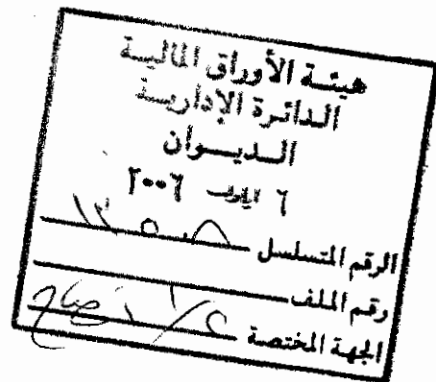 هيئة الأوراق المالية
الدائرة الإدارية
الديوان
٦ ايلول ٢٠٠٦
الرقم المتسلسل ١٢٥٠٨
رقم الملف
الجهة المختصة